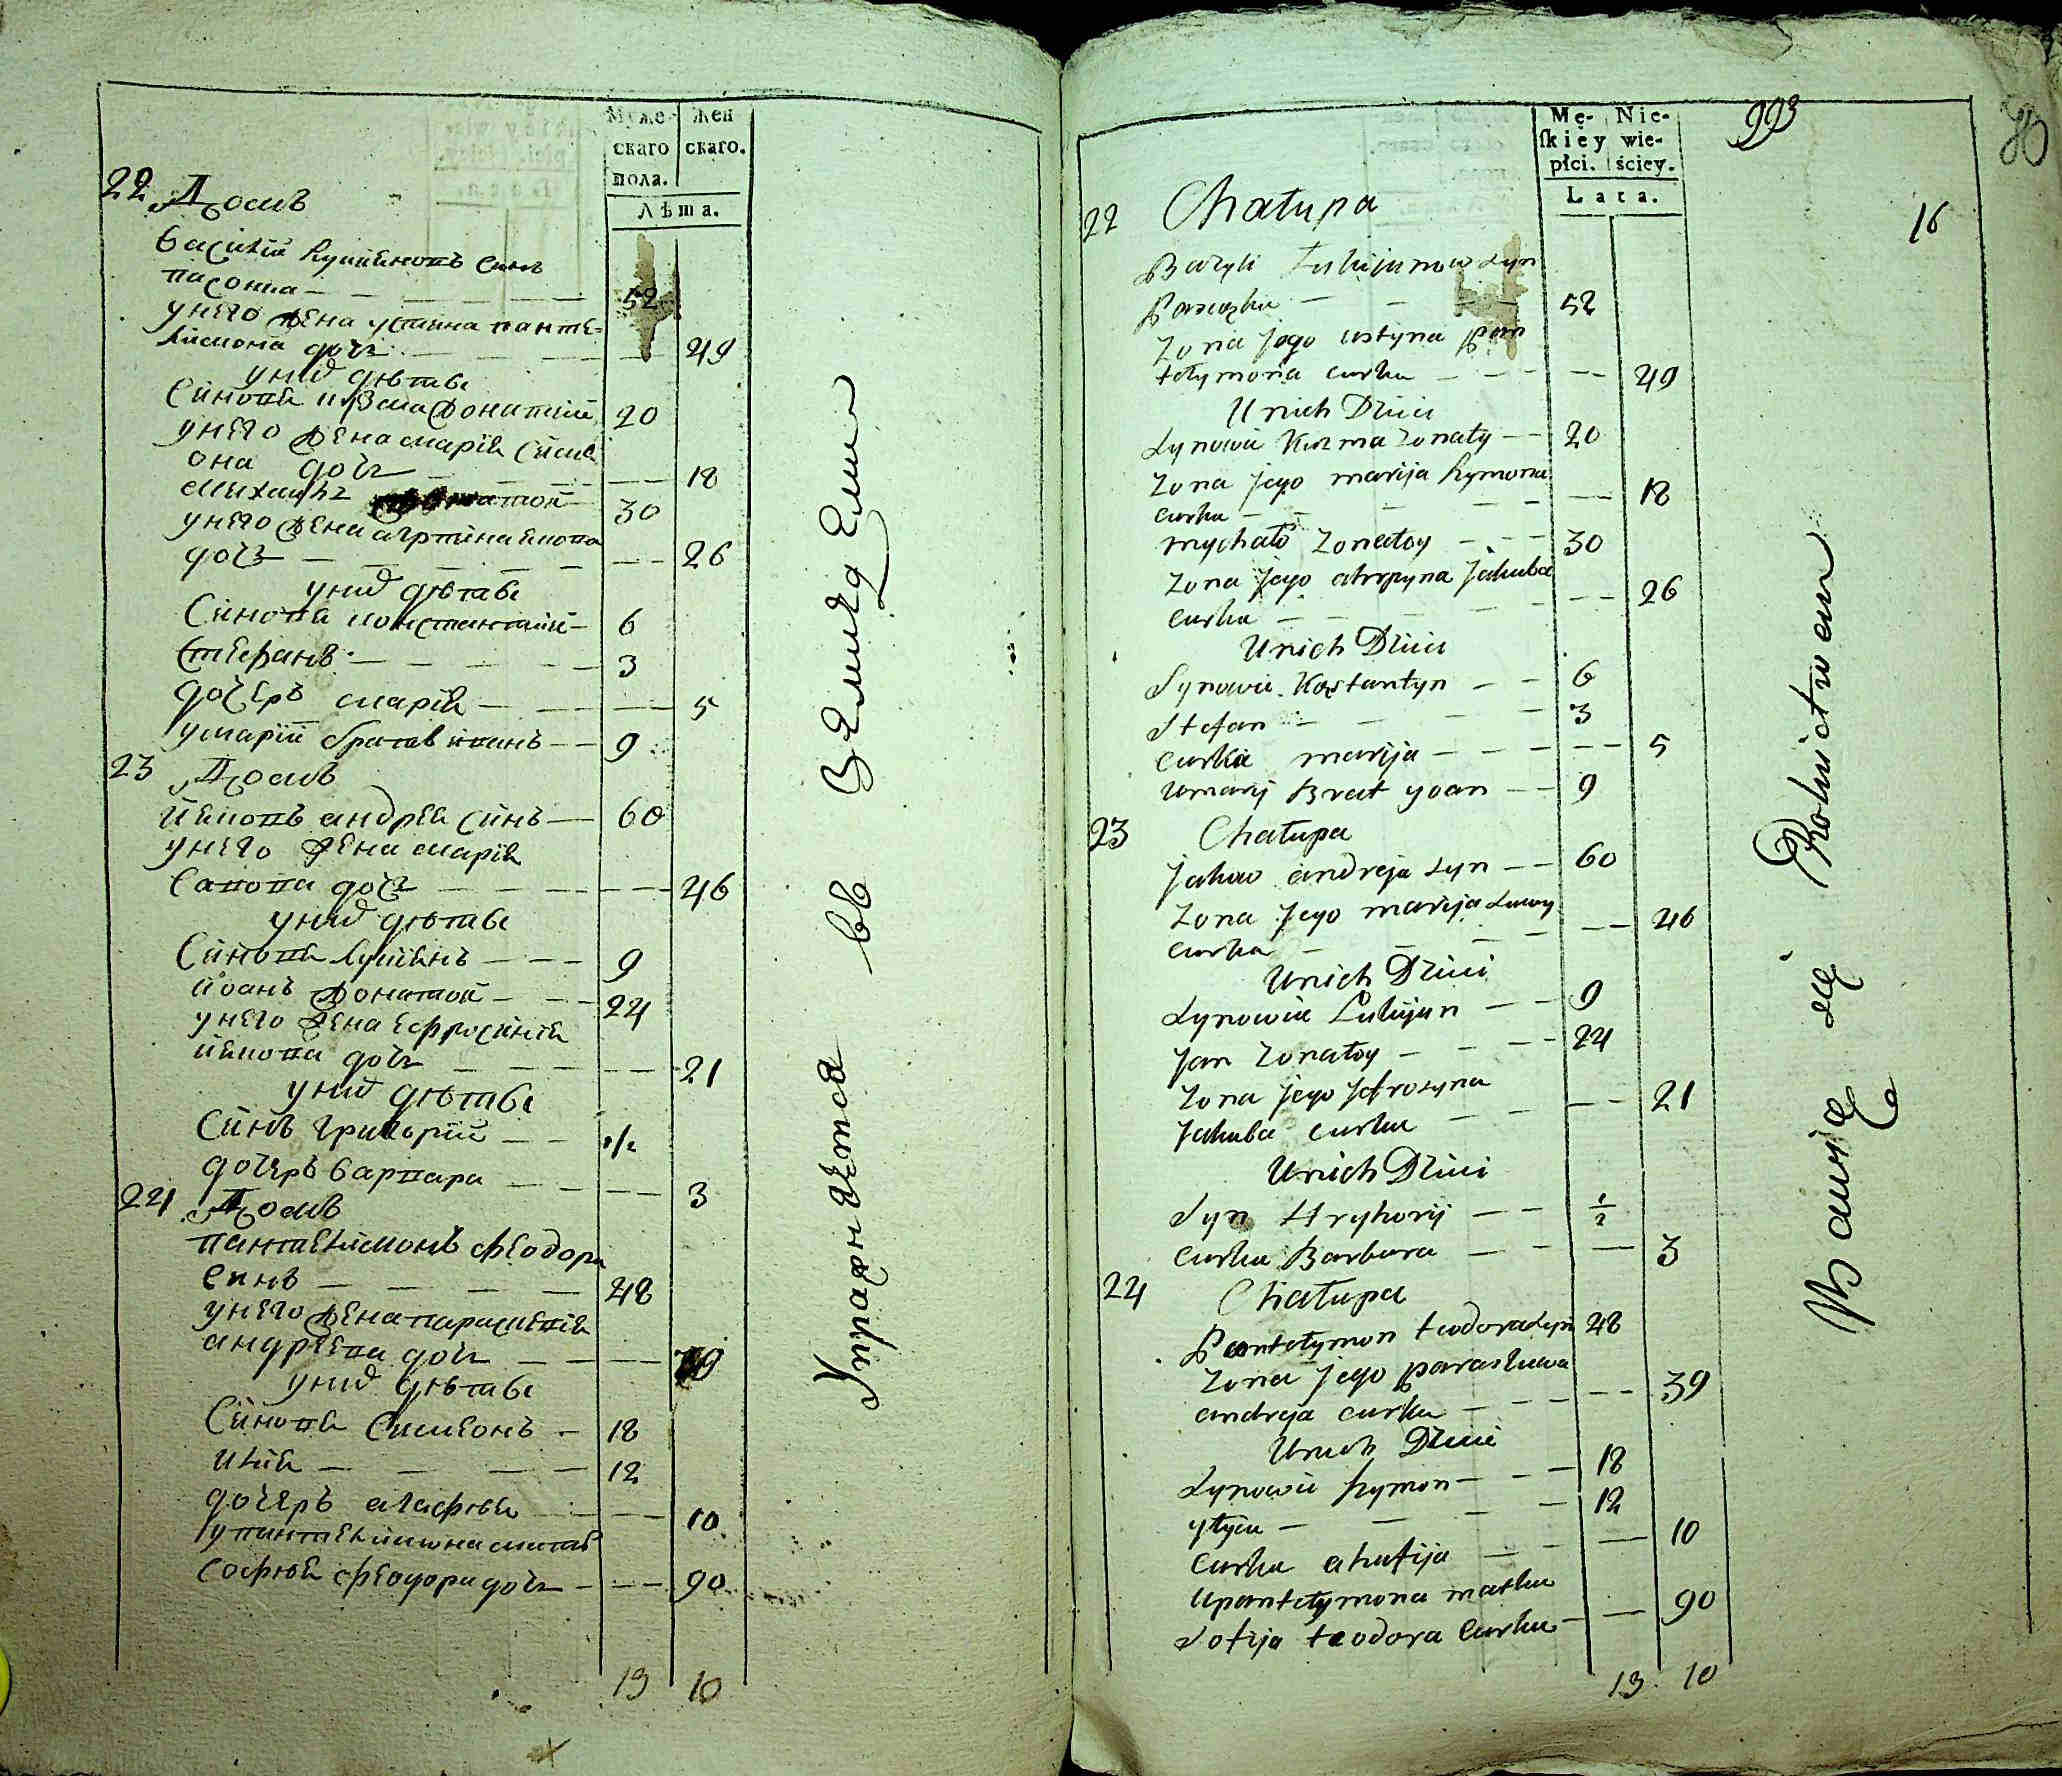 Муже-
скаго
пола.
Жен
скаго.
Лѣта.
22 Домъ
Василій Лукіяновъ синъ
пасѣчка — 52
у него жена устина панте-
лимона дочь — 49
у них дѣтвь
Синови кузма жонатій 20
у него жена марія Симе
она дочь — 18
михаилъ жонатой 30
у него жена агрпина якова
дочь — 26
у них дѣтвь
Синови константий 6
Стефанъ — 3
дочерь марія — 5
у маріи братъ иванъ — 9
23 Домъ
Яковъ андрея синъ — 60
у него жена марія
Савова дочь — 46
у них дѣтвь
Синови Лукіянъ — 9
Иоанъ жонатой — 24
у него жена Ефросинія
якова дочь — 21
у них дѣтвь
Синъ григорій — 1/2
дочерь варвара — 3
24 Домъ
пантелимонъ феодора
синъ — 48
у него жена параскевія
андреева дочь — 39
у них дѣтвь
Синови Симеонъ — 18
илія — 12
дочерь агафія — 10
у пантелимона мать
софія феодора дочь — 90
13 10
Упражняются въ Земледелии
993
80
Mę-
skiéy
płci.
Nie-
wie-
ściey.
Lata.
16
22 Chałupa
Bazyli Łukijanow syn
Pasieczka — 52
Zona Jego ustyna pan
tełymona curka — 49
U nich Dzieci
Synowie Kuzma zonaty — 20
Zona Jego marija Symona
curka — 18
mychało Zonatoy — 30
Zona Jego ahrypyna Jakuba
curka — 26
U nich Dzieci
Synowie Kostantyn — 6
Stefan — 3
curka marija — 5
U marij Brat yoan — 9
23 Chałupa
Jakow andreja syn — 60
Zona Jego marija Sawy
curka — 46
U nich Dzieci
Synowie Lukijan — 9
Jan Zonatoy — 24
Zona Jego Jefrosyna
Jakuba curka — 21
U nich Dzieci
Syn Hryhorij — 1/2
curka Barbara — 3
24 Chałupa
Pantełymon teodora syn 48
Zona Jego paraskewa
andreja curka — 39
U nich Dzieci
Synowie Symon — 18
yłyia — 12
curka ahafija — 10
U pantełymona matka
Sofija teodora curka — 90
13 10
Bawię się Rolnictwem